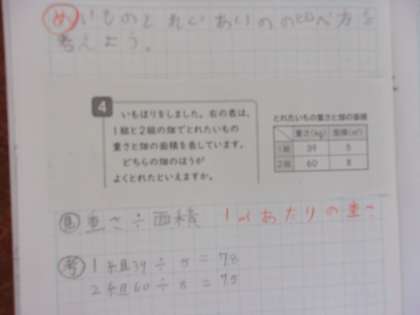 め いものとれいあいのの比べ方を
考えよう。
4
いもほりをしました。右の表は、
1組と2組の畑でとれたいもの
重さと畑の面積を表しています。
どちらの畑のほうが
よくとれたといえますか。
とれたいもの重さと畑の面積
重さ(kg) 面積(㎡)
1組 39 5
2組 60 8
見 重さ÷面積 1㎡あたりの重さ
考 1組39÷5=78
2組60÷8=75